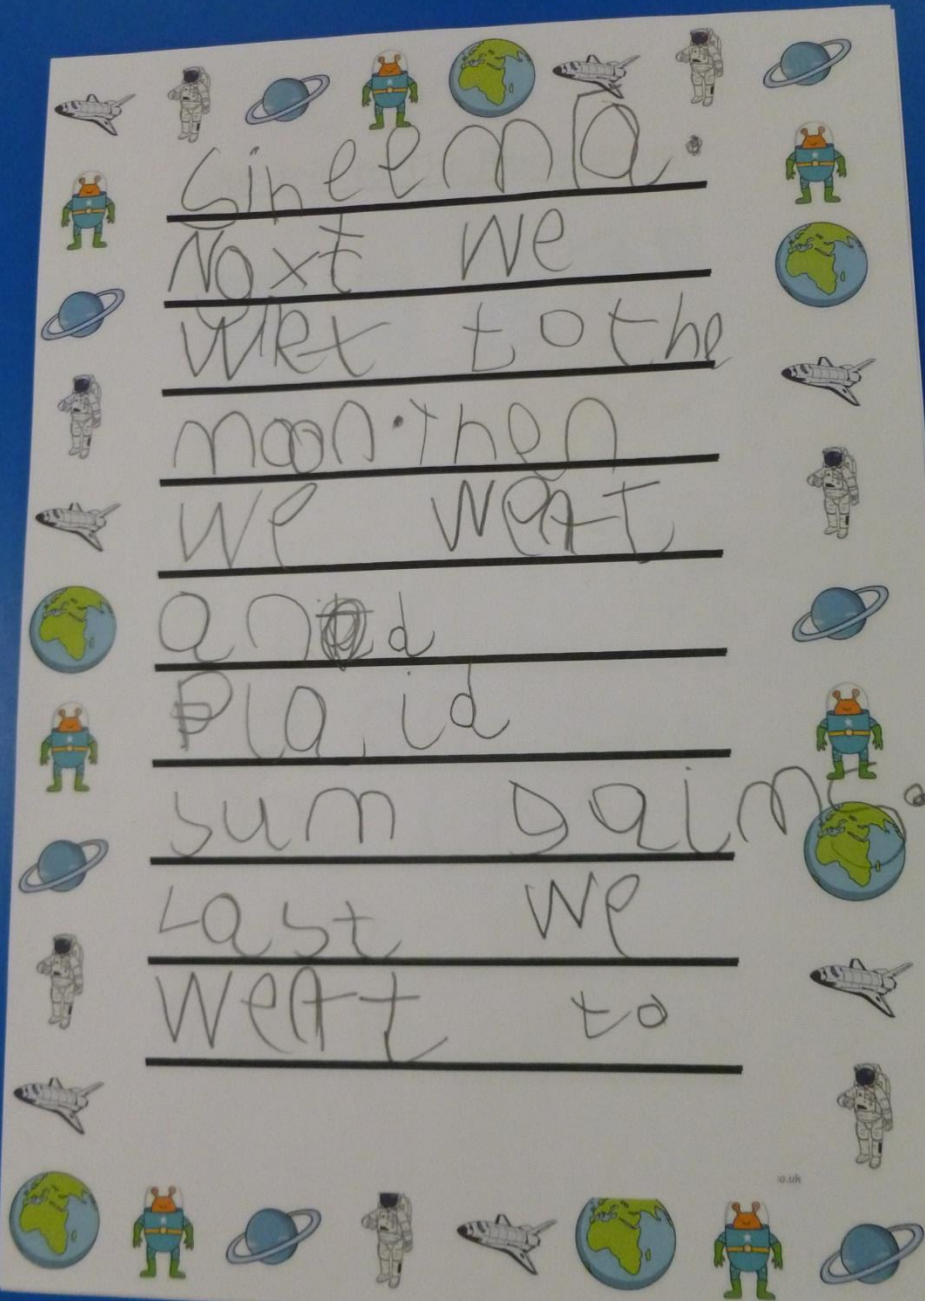 Sineema.
Next we
went to the
moon. Then
we went
and
Plaid
sum gaims.
Last we
went to
o.uk